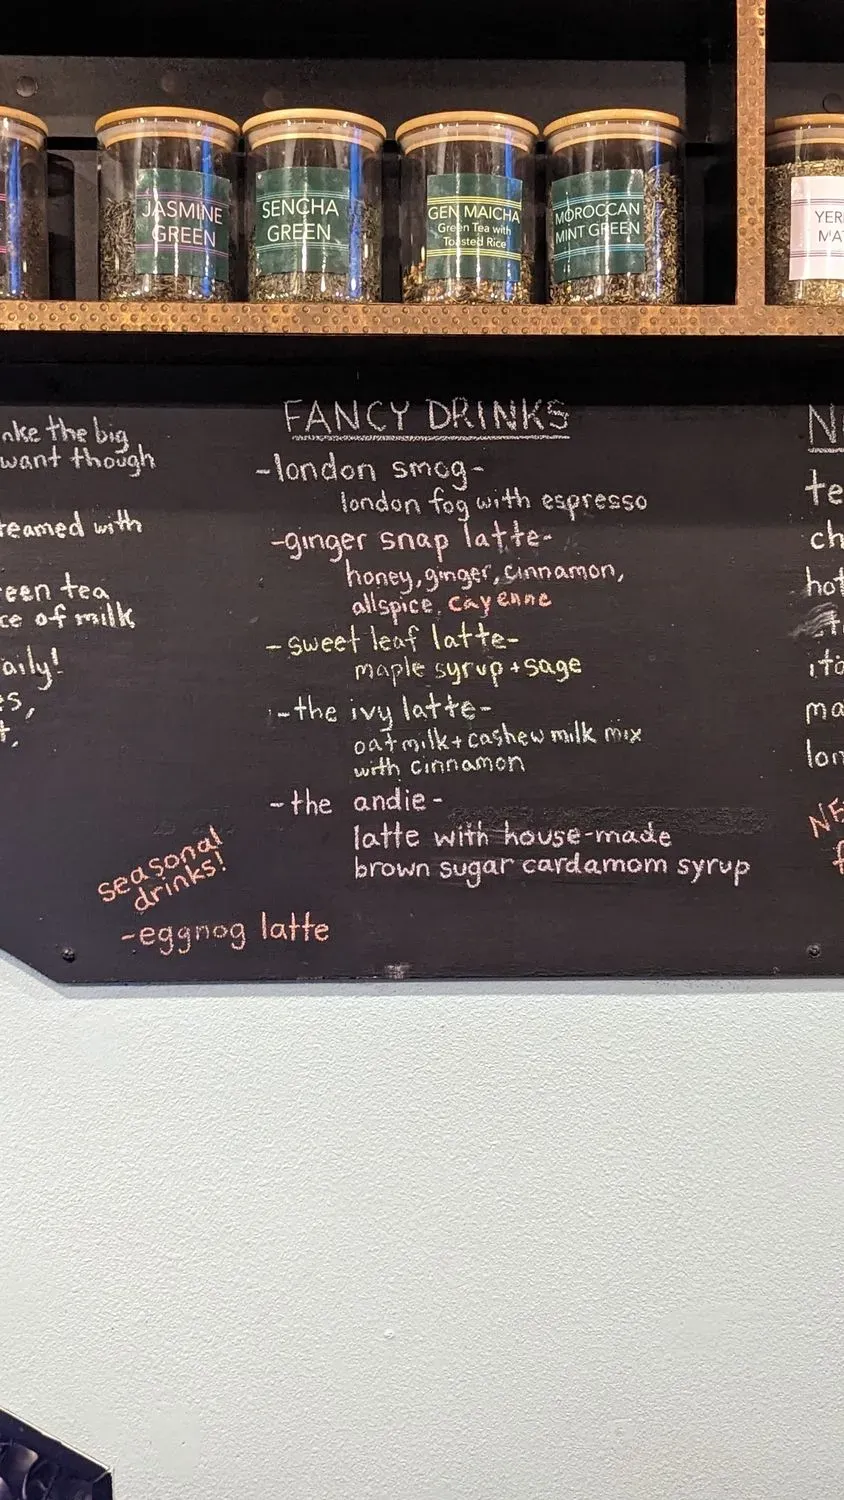 JASMINE
GREEN
SENCHA
GREEN
GEN MAICHA
Green Tea with
Toasted Rice
MOROCCAN
MINT GREEN
the big
want though
with
tea
of milk
FANCY DRINKS
-london smog-
london fog with espresso
-ginger snap latte-
honey, ginger, cinnamon,
allspice, cayenne
-sweet leaf latte-
maple syrup + sage
-the ivy latte-
oat milk + cashew milk mix
with cinnamon
-the andie-
latte with house-made
brown sugar cardamom syrup
seasonal
drinks!
-eggnog latte